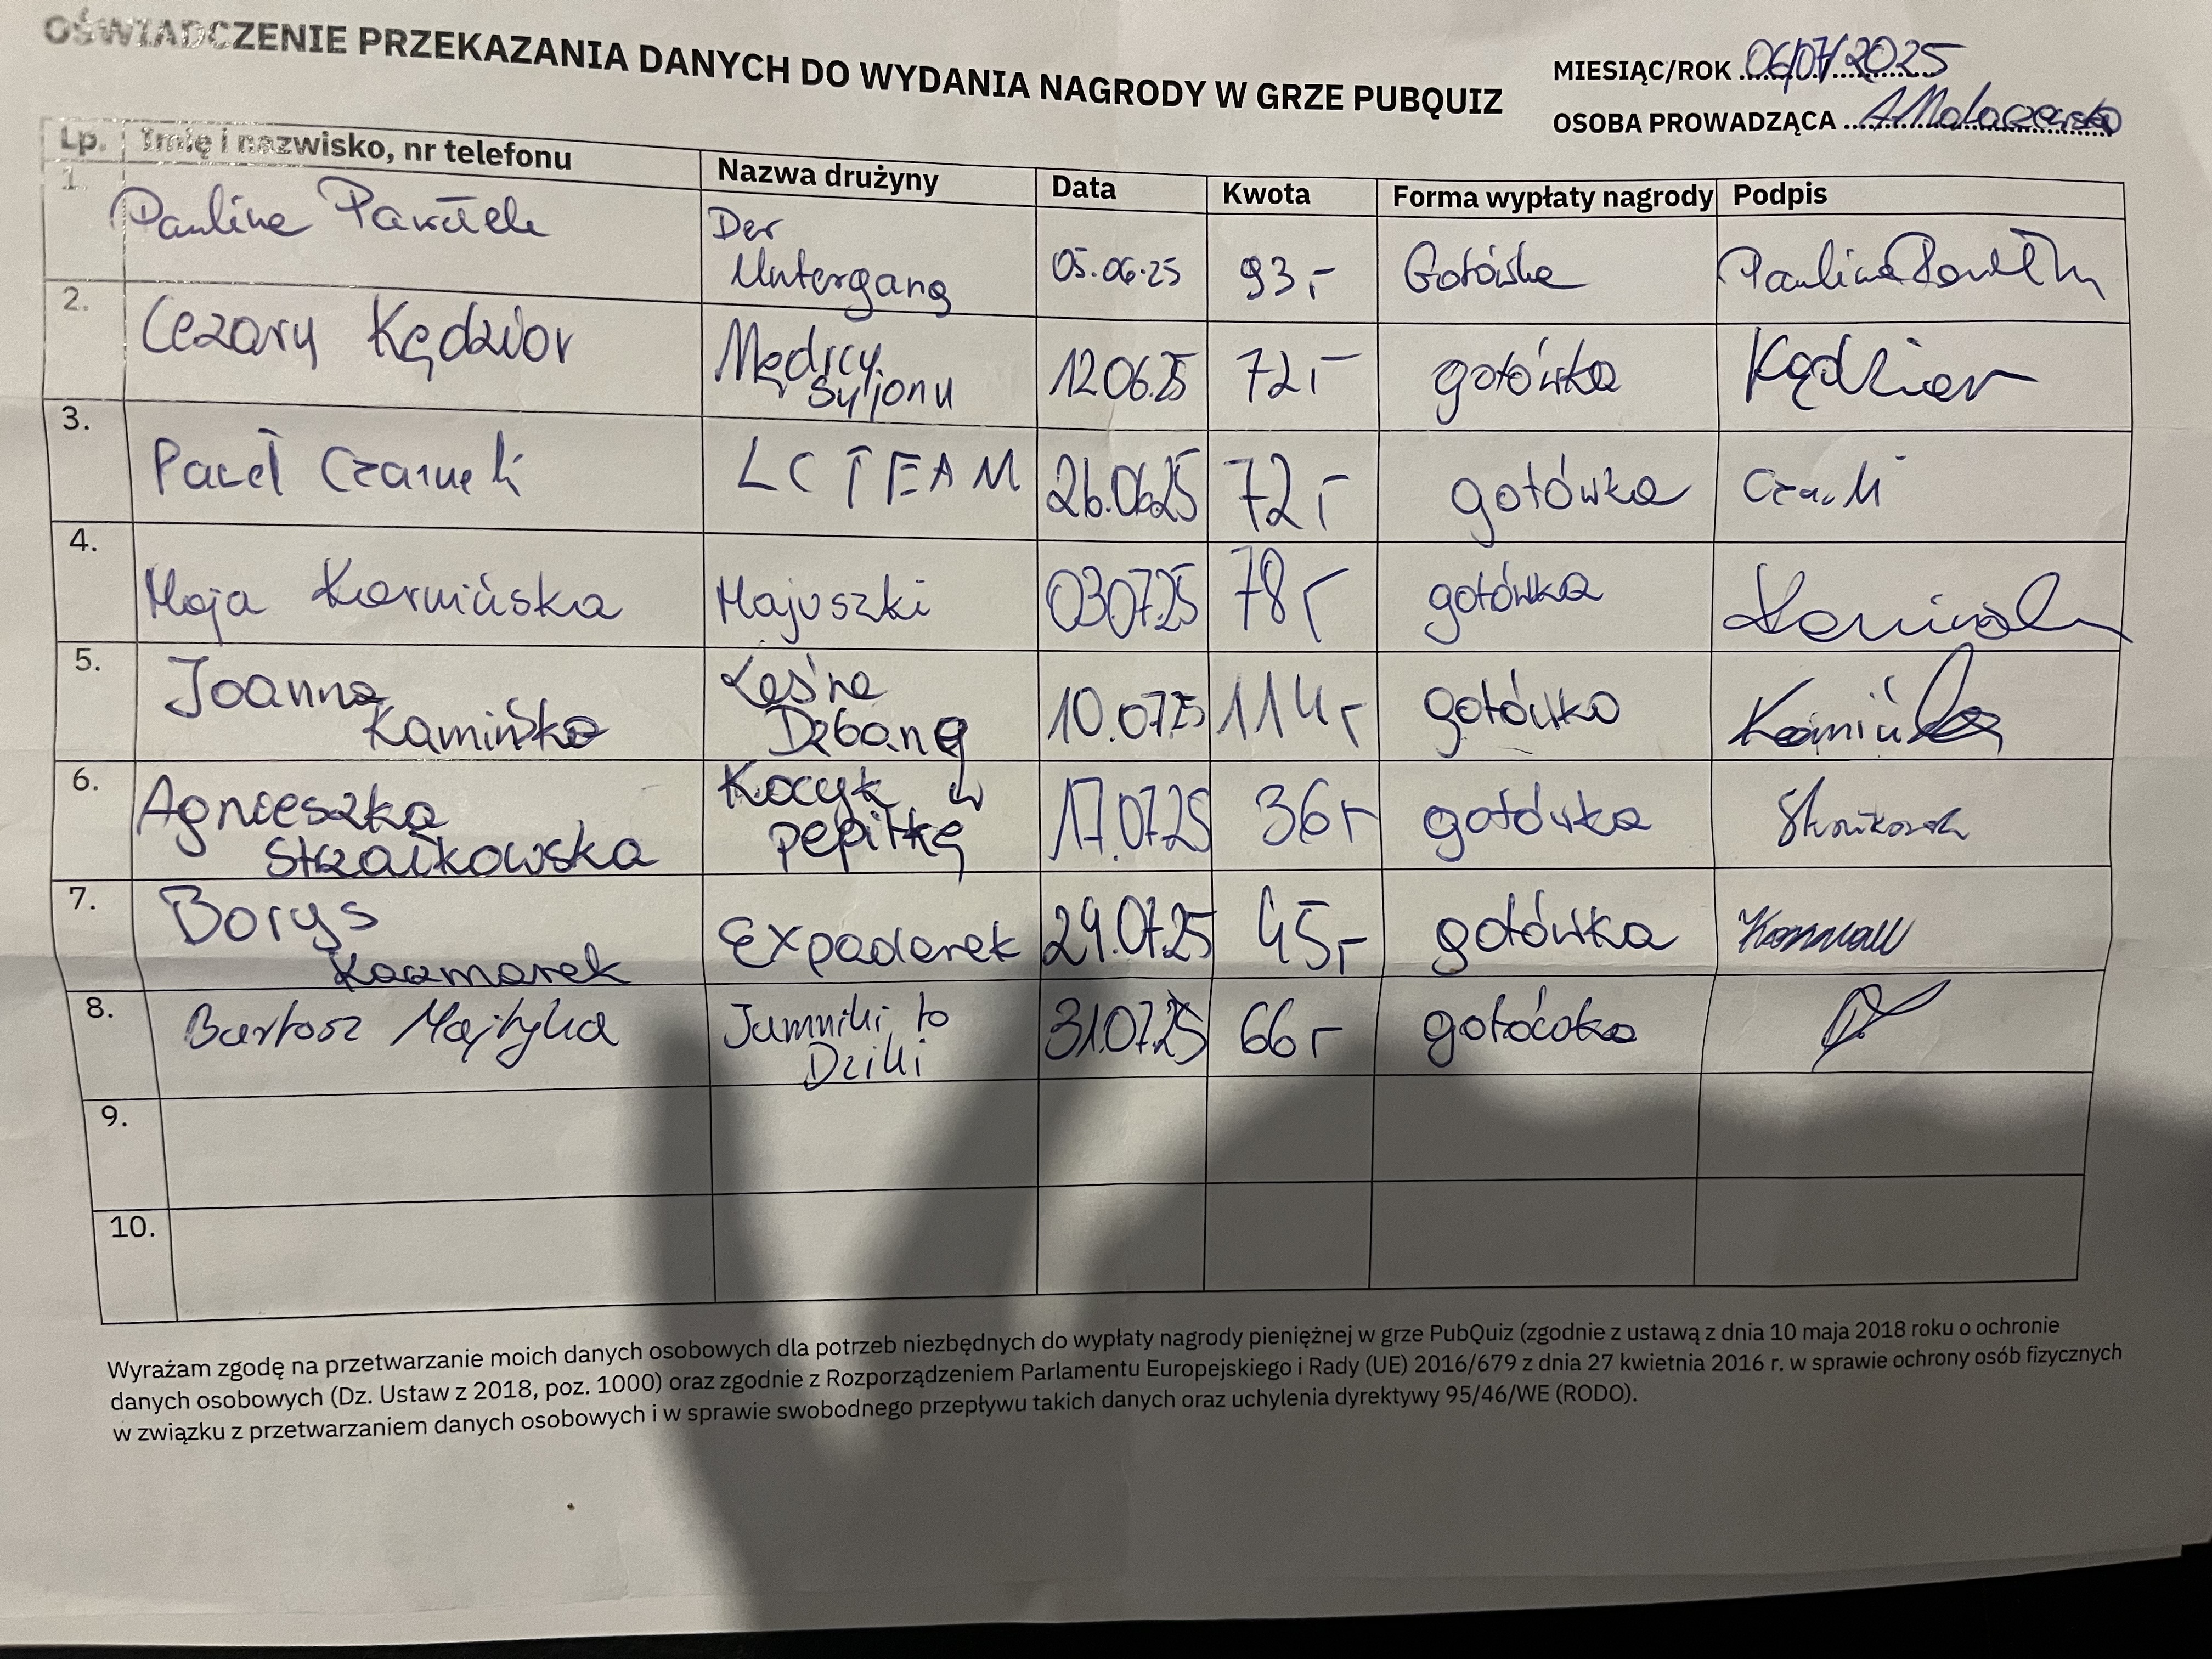 OŚWIADCZENIE PRZEKAZANIA DANYCH DO WYDANIA NAGRODY W GRZE PUBQUIZ
MIESIĄC/ROK 06/07/2025
OSOBA PROWADZĄCA
Lp. Imię i nazwisko, nr telefonu Nazwa drużyny Data Kwota Forma wypłaty nagrody Podpis
1. Paulina Der Untergang 05.06.25 93,- Gotówka Paulina
2. Cezary Kędzior Mędrcy Syjonu 12.06.25 72,- gotówka Kędzior
3. Paweł LC TEAM 26.06.25 72,- gotówka
4. Maja Kamińska Majuszki 03.07.25 78,- gotówka
5. Joanna Kamińska Leśne Dzbany 10.07.25 114,- gotówka Kamińska
6. Agnieszka Strzałkowska Kocyk w pepitkę 17.07.25 36,- gotówka
7. Borys Kaczmarek Expaderek 24.07.25 45,- gotówka
8. Bartosz Majtyka Jamniki to Dziki 31.07.25 66,- gotówka
9.
10.
Wyrażam zgodę na przetwarzanie moich danych osobowych dla potrzeb niezbędnych do wypłaty nagrody pieniężnej w grze PubQuiz (zgodnie z ustawą z dnia 10 maja 2018 roku o ochronie
danych osobowych (Dz. Ustaw z 2018, poz. 1000) oraz zgodnie z Rozporządzeniem Parlamentu Europejskiego i Rady (UE) 2016/679 z dnia 27 kwietnia 2016 r. w sprawie ochrony osób fizycznych
w związku z przetwarzaniem danych osobowych i w sprawie swobodnego przepływu takich danych oraz uchylenia dyrektywy 95/46/WE (RODO).